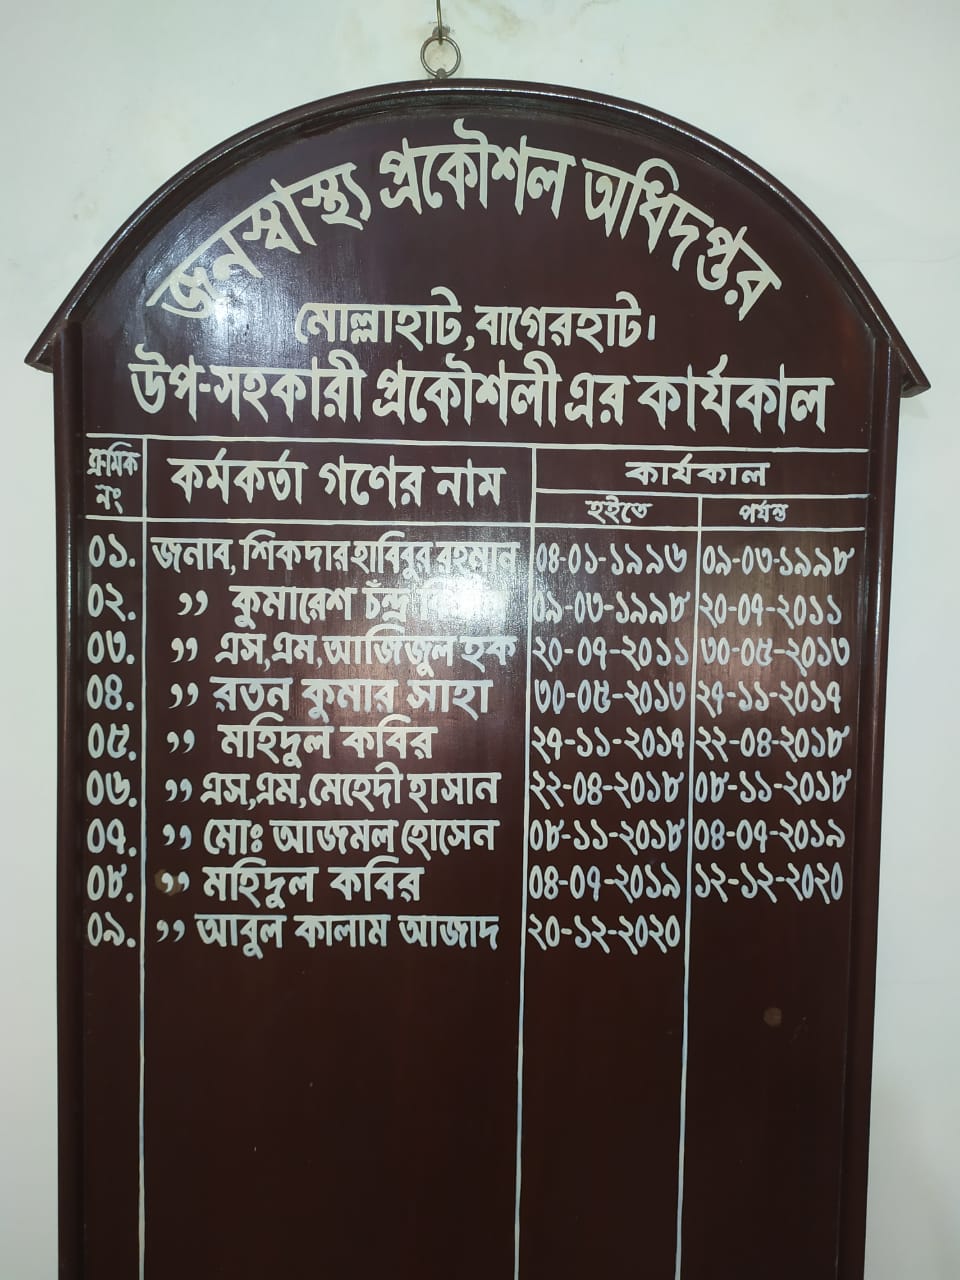 জনস্বাস্থ্য প্রকৌশল অধিদপ্তর
মোল্লাহাট, বাগেরহাট।
উপ-সহকারী প্রকৌশলী এর কার্যকাল
ক্রমিক নং কর্মকর্তা গণের নাম কার্যকাল
হইতে পর্যন্ত
০১. জনাব, শিকদার হাবিবুর রহমান ০৪-০১-১৯৯৬ ০৯-০৩-১৯৯৮
০২. ,, কুমারেশ চঁন্দ্র ০৯-০৩-১৯৯৮ ২০-০৭-২০১১
০৩. ,, এস,এম,আজিজুল হক ২০-০৭-২০১১ ৩০-০৫-২০১৩
০৪. ,, রতন কুমার সাহা ৩০-০৫-২০১৩ ২৭-১১-২০১৭
০৫. ,, মহিদুল কবির ২৭-১১-২০১৭ ২২-০৪-২০১৮
০৬. ,, এস,এম,মেহেদী হাসান ২২-০৪-২০১৮ ০৮-১১-২০১৮
০৭. ,, মোঃ আজমল হোসেন ০৮-১১-২০১৮ ০৪-০৭-২০১৯
০৮. ,, মহিদুল কবির ০৪-০৭-২০১৯ ১২-১২-২০২০
০৯. ,, আবুল কালাম আজাদ ২০-১২-২০২০